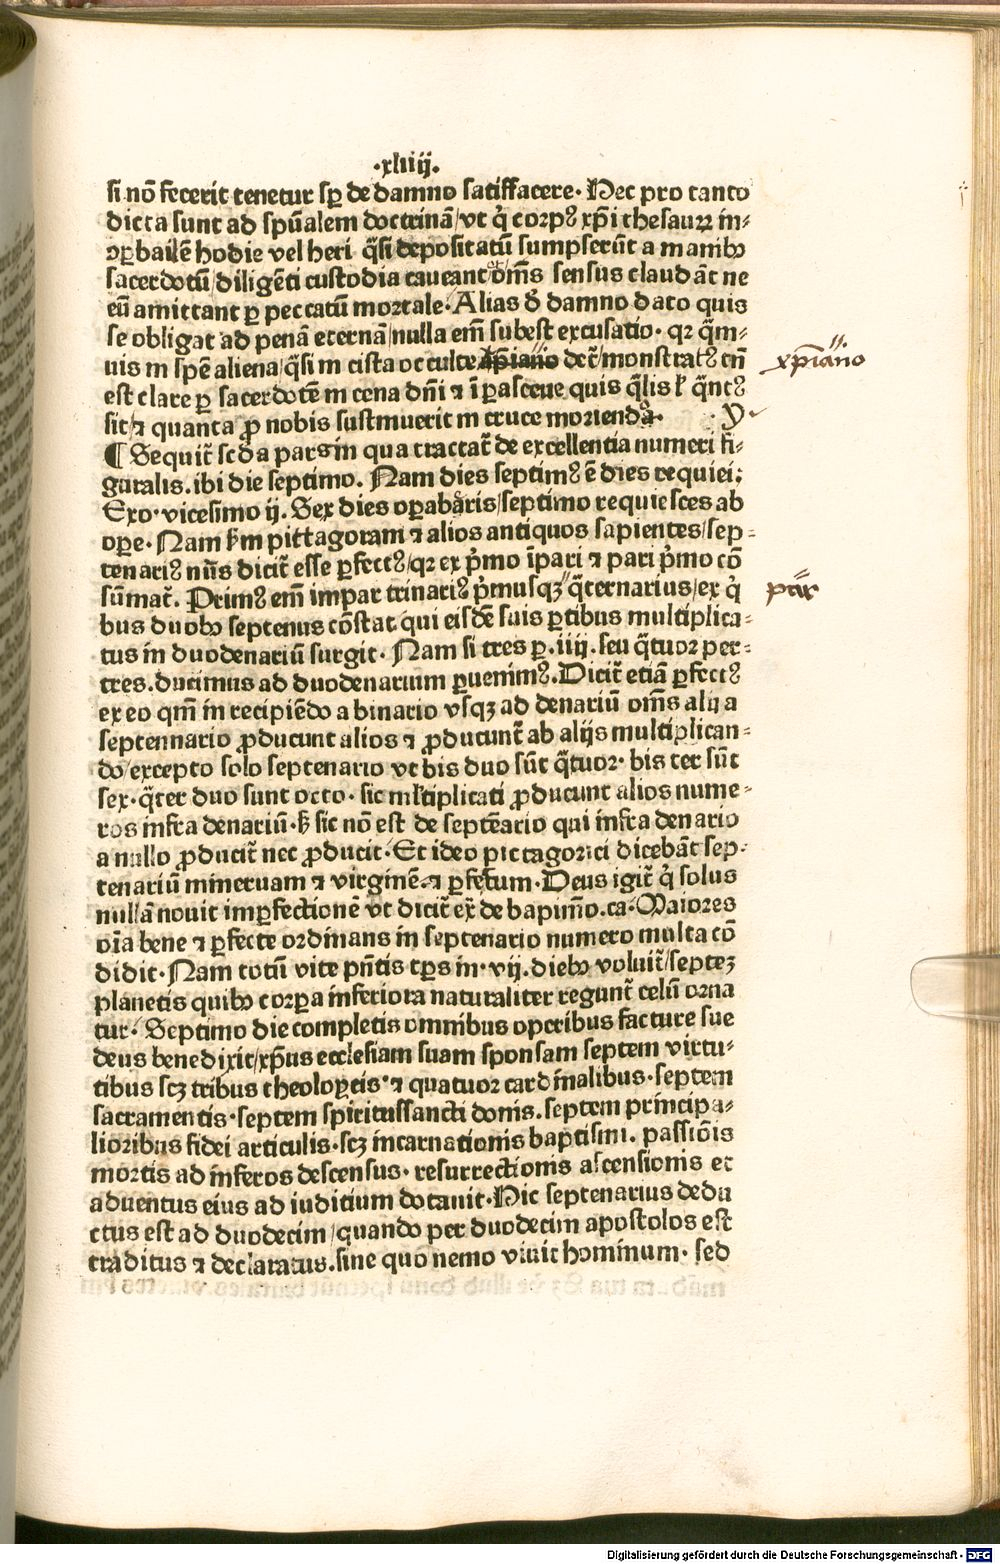 ·xliiij.
si nō fecerit tenetur sꝑ de damno satiffacere· Hec pro tanto
dicta sunt ad spūalem doctrinā/vt q̇ corpꝰ xp̄i thesauꝝ in⸗
ꝯꝑbailē hodie vel heri q̄si depositatū sumpserūt a manibꝰ
sacerdotū/diligēti custodia caueant om̄s sensus claudāt ne
eū amittant ꝑ peccatū mortale· Alias ð damno dato quis
se obligat ad penā eternā/nulla em̄ subest excusatio· qꝛ q̄m⸗
uis in spē aliena/q̄si in cista occulte xp̄iano det̄/monstratꝰ tn̄
xp̄iāno
est clare ꝑ sacerdotē in cena dn̄i ⁊ ī ꝑasceue quis q̄lis ł q̄ntꝰ
sit/⁊ quanta ꝓ nobis sustinuerit in cruce moriendo.
¶ Sequit̄ scd̄a pars in qua tractat̄ de excellentia numeri fi⸗
guralis. ibi die septimo. Nam dies septimꝰ ē dies requiei;
Exo· vicesimo ij. Sex dies oꝑabaris/septimo requiesces ab
oꝑe· Nam ẜm pittagoram ⁊ alios antiquos sapientes/sep⸗
tenariꝰ nūs dicit̄ esse ꝑfectꝰ/qꝛ ex p̄mo īpari ⁊ pari p̄mo cō
sūmat̄. Primꝰ em̄ impar trinariꝰ p̄musqꝫ q̄ternarius/ex q̇
par
bus duobꝰ septenus cōstat qui eisdē suis ꝑtibus multiplica⸗
tus in duodenariū surgit· Nam si tres ꝑ .iiij. seu q̄tuor per⸗
tres. ducimus ad duodenarium ꝑuenimꝰ. Dicit̄ etiā ꝑfectꝰ
ex eo qm̄ in recipiēdo a binario vsqꝫ ad denariū om̄s alij a
septennario ꝓducunt alios ⁊ ꝓducunt̄ ab alijs multiplican⸗
do/excepto solo septenario vt bis duo sūt q̄tuor· bis ter sūt
sex· q̄ter duo sunt octo· sic mltiplicati ꝓducunt alios nume⸗
ros infra denariū· ꝫ sic nō est de septēario qui infra denario
a nullo ꝓducit̄ nec ꝓducit· Et ideo pictagorici dicebāt sep⸗
tenariū mineruam ⁊ virginē. ⁊ ꝑfectum· Deus igit̄ q̇ solus
nullā nouit imꝑfectionē vt dicit̄ ex̄ de bapim̄o. ca· Maiores
oīa bene ⁊ ꝑfecte ordinans in septenario numero multa cō
didit· Nam totū vite pn̄tis tp̄s in· vij. diebꝰ voluit̄/septeꝫ
planetis quibꝰ corꝑa inferiora naturaliter regunt̄ celū orna
tur· Septimo die completis omnibus operibus facture sue
deus benedixit/xp̄us ecclesiam suam sponsam septem virtu⸗
tibus scꝫ tribus theoloꝑcis· ⁊ quatuor cardinalibus· septem
sacramentis· septem spiritussancti donis. septem principa⸗
lioribus fidei articulis· scꝫ incarnationis baptismi. passiōis
mortis ad inferos descensus· resurrectionis ascensionis et
aduentus eius ad iuditium dotauit· Hic septenarius dedu
ctus est ad duodecim/quando per duodecim apostolos est
traditus ⁊ declaratus. sine quo nemo viuit hominum· sed
Digitalisierung gefördert durch die Deutsche Forschungsgemeinschaft · DFG